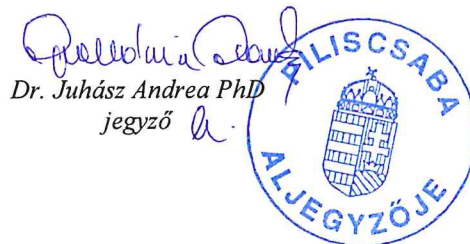 Dr. Juhász Andrea PhD
jegyző
PILISCSABA
ALJEGYZŐJE